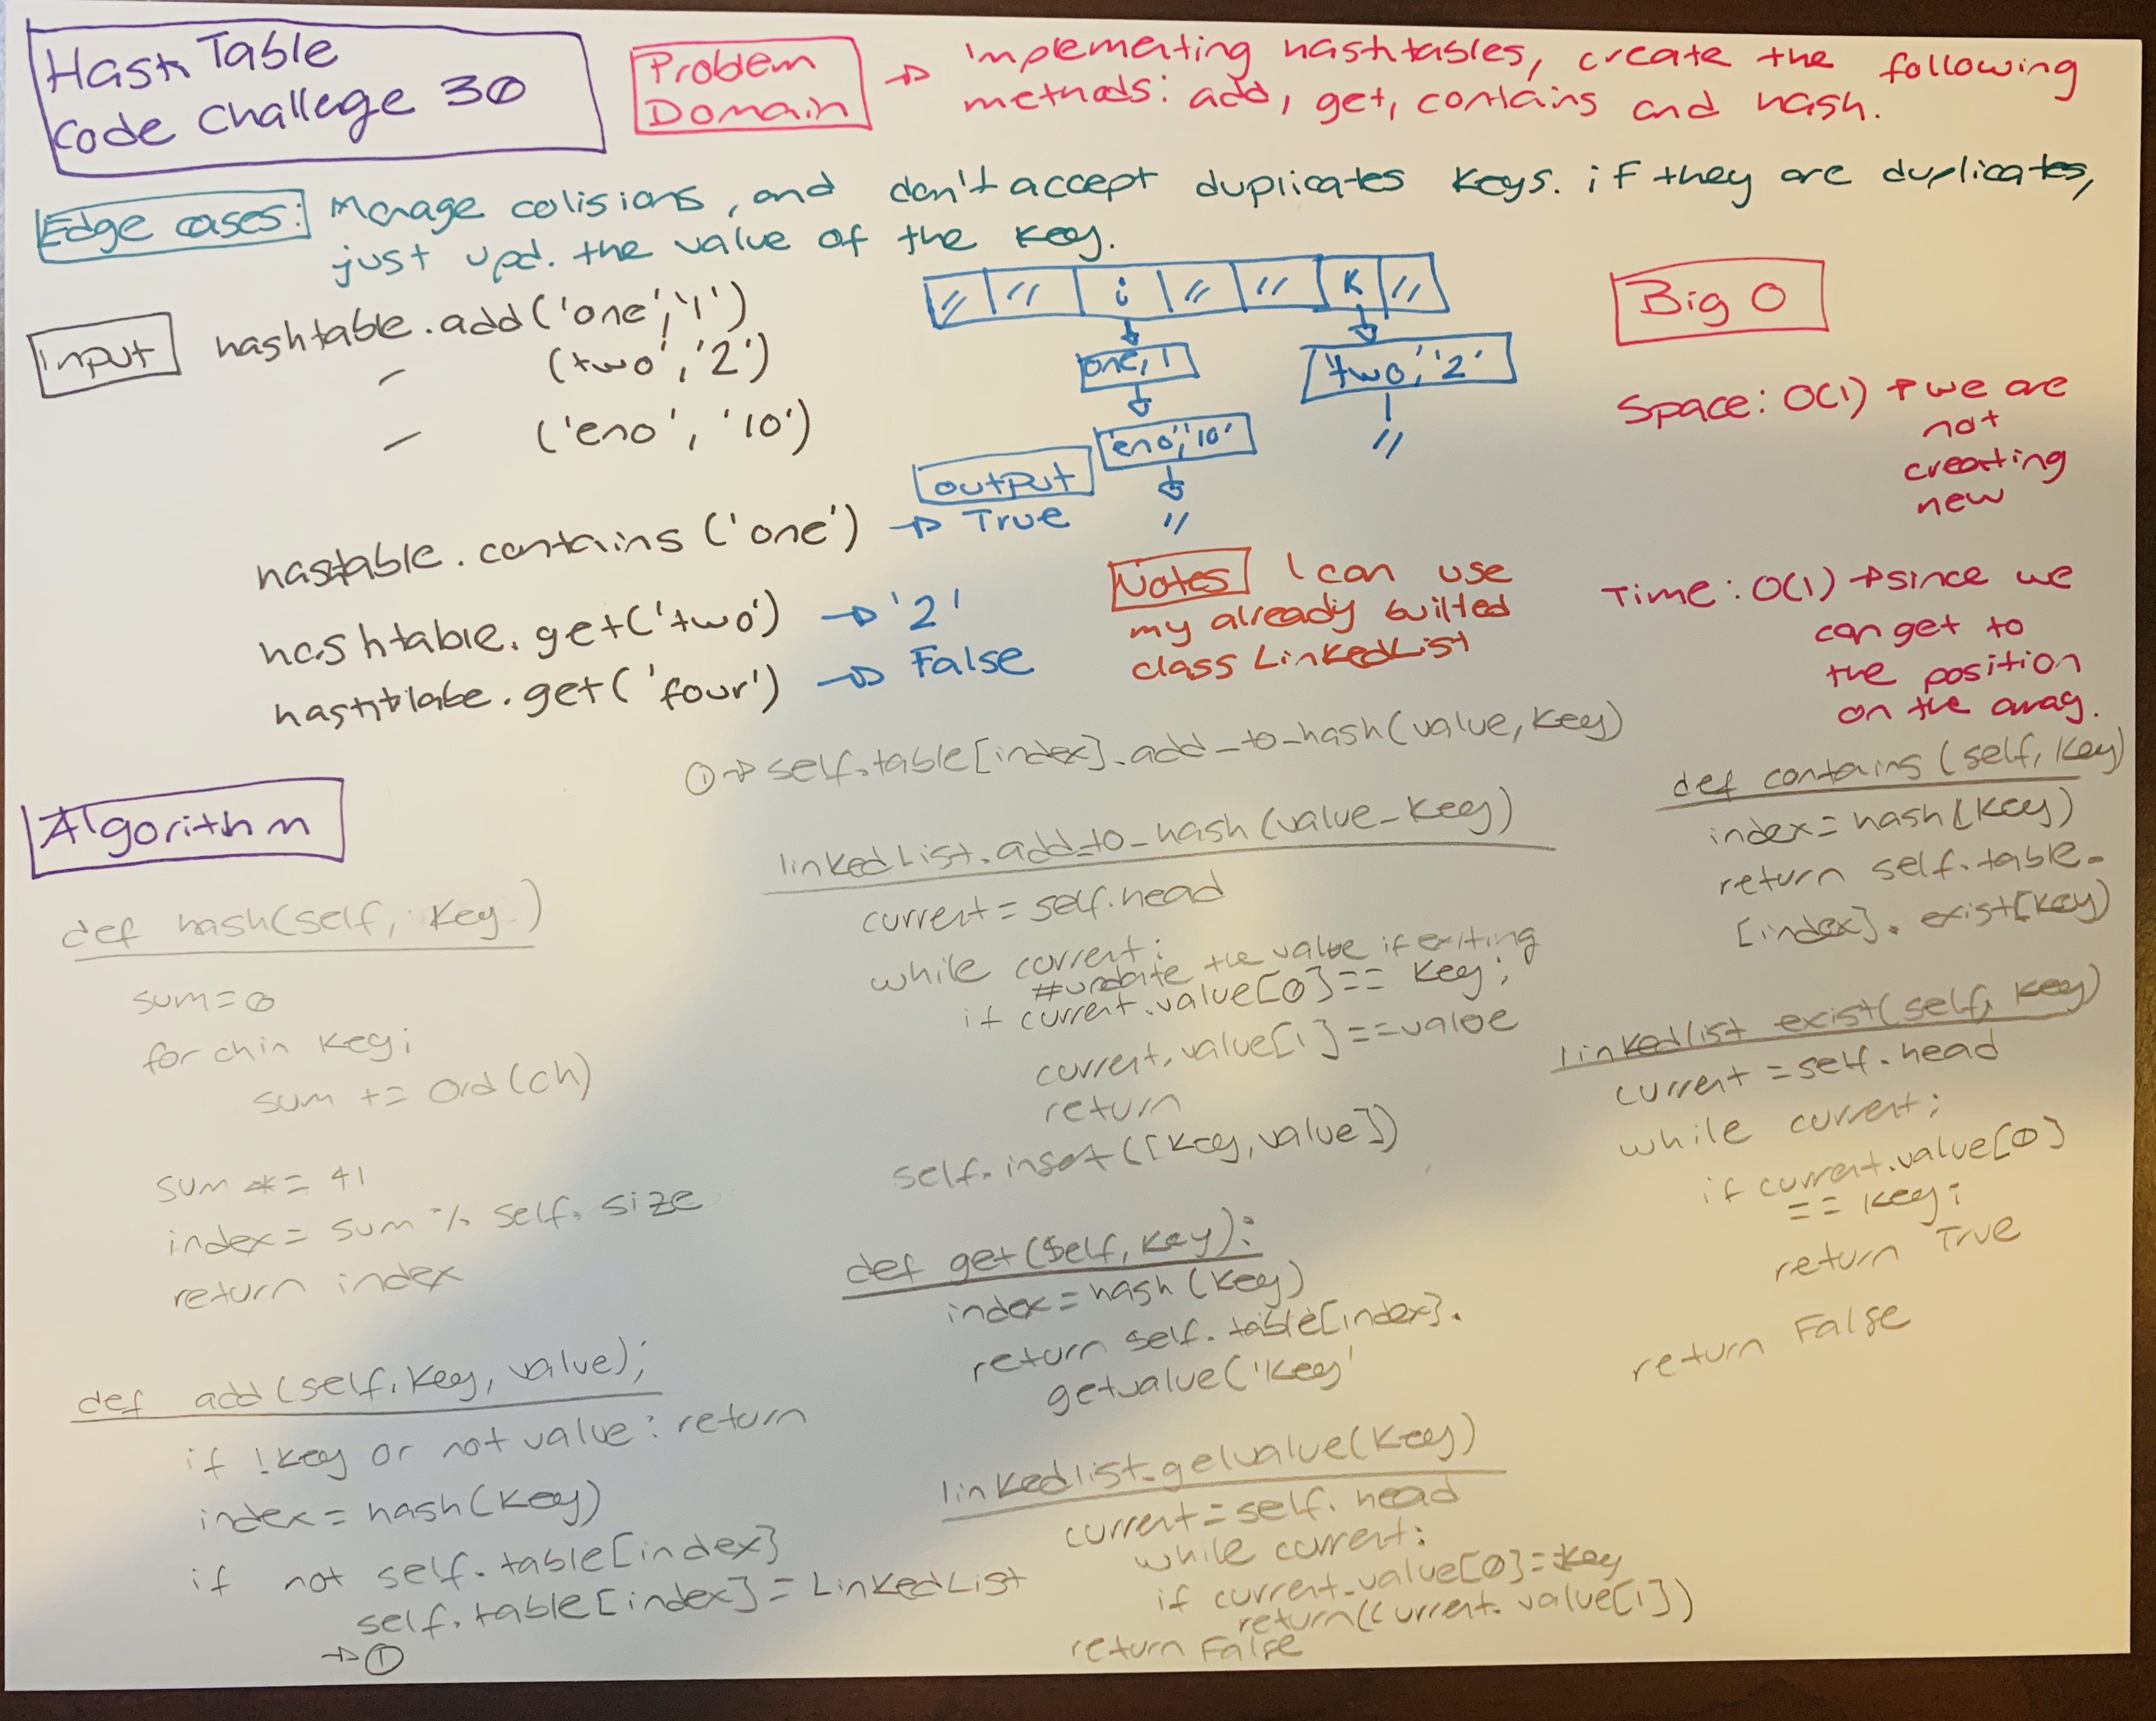 Hash Table
Code Challege 30
Problem
Domain
→ Implementing hashtables, create the following
methods: add, get, contains and hash.
Edge cases: Manage colisions, and don't accept duplicates keys. if they are duplicates,
just upd. the value of the key.
Input
hashtable.add('one','1')
- (two','2')
- ('eno', '10')
// // i // // K //
one, 1
'eno','10'
//
'two','2'
//
output
hashtable.contains ('one') → True
hashtable.get('two') → '2'
hashtblabe.get('four') → False
Notes I can use
my already builted
class LinkedList
Big O
Space: O(1) → we are
not
creating
new
Time: O(1) → since we
can get to
the position
on the array.
Algorithm
def hash(self, key)
sum=0
for ch in key:
sum += Ord(ch)
sum *= 41
index = sum % self.size
return index
def add(self, key, value);
if !key or not value: return
index = hash(key)
if not self.table[index]
self.table[index] = LinkedList
→ ①
① → self.table[index].add_to_hash(value, key)
linkedList.add_to_hash(value_key)
current = self.head
while current:
#update the value if exiting
if current.value[0] == key:
current.value[1] == value
return
self.inset([key, value])
def get($elf, key):
index = hash (key)
return self.table[index].
getvalue('key'
linkedlist.getvalue(key)
current = self.head
while current:
if current.value[0] = key
return(current.value[1])
return False
def contains (self, key)
index = hash[key)
return self.table.
[index].exist[key)
linkedlist exist(self, key)
current = self.head
while current;
if current.value[0]
== key:
return True
return False